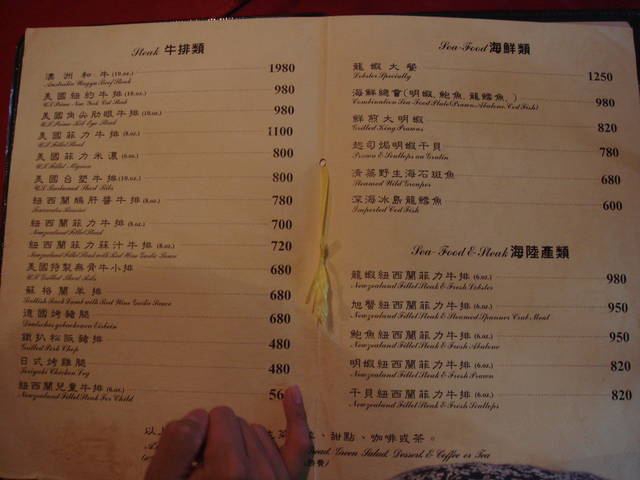 Steak 牛排類
澳洲和牛(10oz.) 1980
Australia Wagyu Beef Steak
美國紐約牛排(10oz.) 980
U.S Prime New York Cut Steak
美國角尖肋眼牛排(10oz.) 980
U.S Prime Rib Eye Steak
美國菲力牛排(8oz.) 1100
U.S Fillet Steak
美國菲力米濃(6oz.) 800
U.S Fillet Mignon
美國台塑牛排 800
U.S Barbecued Short Ribs
紐西蘭鵝肝醬牛排(6oz.) 780
Tournedos Rossini
紐西蘭菲力牛排(8oz.) 700
Newzealand Fillet Steak
紐西蘭菲力蒜汁牛排(6oz.) 720
Newzealand Fillet Steak with Red Wine Garlic Sauce
美國特製無骨牛小排 680
U.S Grilled Short Ribs
蘇格蘭羊排 680
Scottish Rack Lamb with Red Wine Garlic Sauce
德國烤豬腿 680
Deutsches gebackenes Eisbein
鐵扒松阪豬排 480
Grilled Pork Chop
日式烤雞腿 480
Teriyaki Chicken Leg
紐西蘭兒童牛排(6oz.) 56
Newzealand Fillet Steak For Child
Sea-Food 海鮮類
龍蝦大餐 1250
Lobster Specialty
海鮮總會(明蝦,鮑魚,龍鱈魚,) 980
Combination Sea Food Plate(Prawn,Abalone,Cod Fish)
鮮煎大明蝦 820
Grilled King Prawns
起司焗明蝦干貝 780
Prawn & Scallops au Gratin
清蒸野生海石斑魚 680
Steamed Wild Grouper
深海冰島龍鱈魚 600
Imported Cod Fish
Sea-Food & Steak 海陸產類
龍蝦紐西蘭菲力牛排(6oz.) 980
Newzealand Fillet Steak & Fresh Lobster
旭蟹紐西蘭菲力牛排(6oz.) 950
Newzealand Fillet Steak & Steamed Spanner Crab Meat
鮑魚紐西蘭菲力牛排(6oz.) 950
Newzealand Fillet Steak & Fresh Abalone
明蝦紐西蘭菲力牛排(6oz.) 820
Newzealand Fillet Steak & Fresh Prawn
干貝紐西蘭菲力牛排(6oz.) 820
Newzealand Fillet Steak & Fresh Scallops
以上 、甜點、咖啡或茶。
Bread, Green Salad, Dessert, & Coffee or Tea